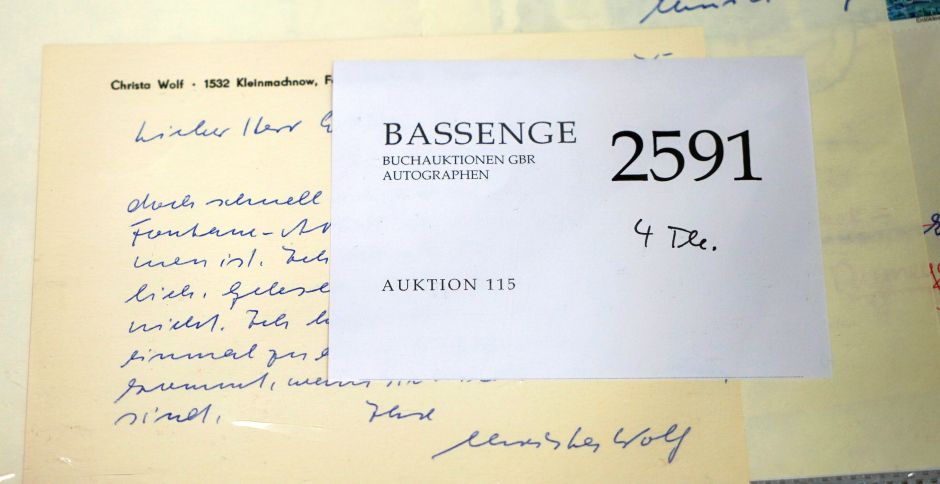 Christa Wolf · 1532 Kleinmachnow,
Lieber Herr
doch schnell
Fontane-
men ist. Ich
lich.
nicht. Ich
einmal zu
kommt, wenn
sind. Ihre
Christa Wolf
BASSENGE
BUCHAUKTIONEN GBR
AUTOGRAPHEN
2591
4 Tle.
AUKTION 115